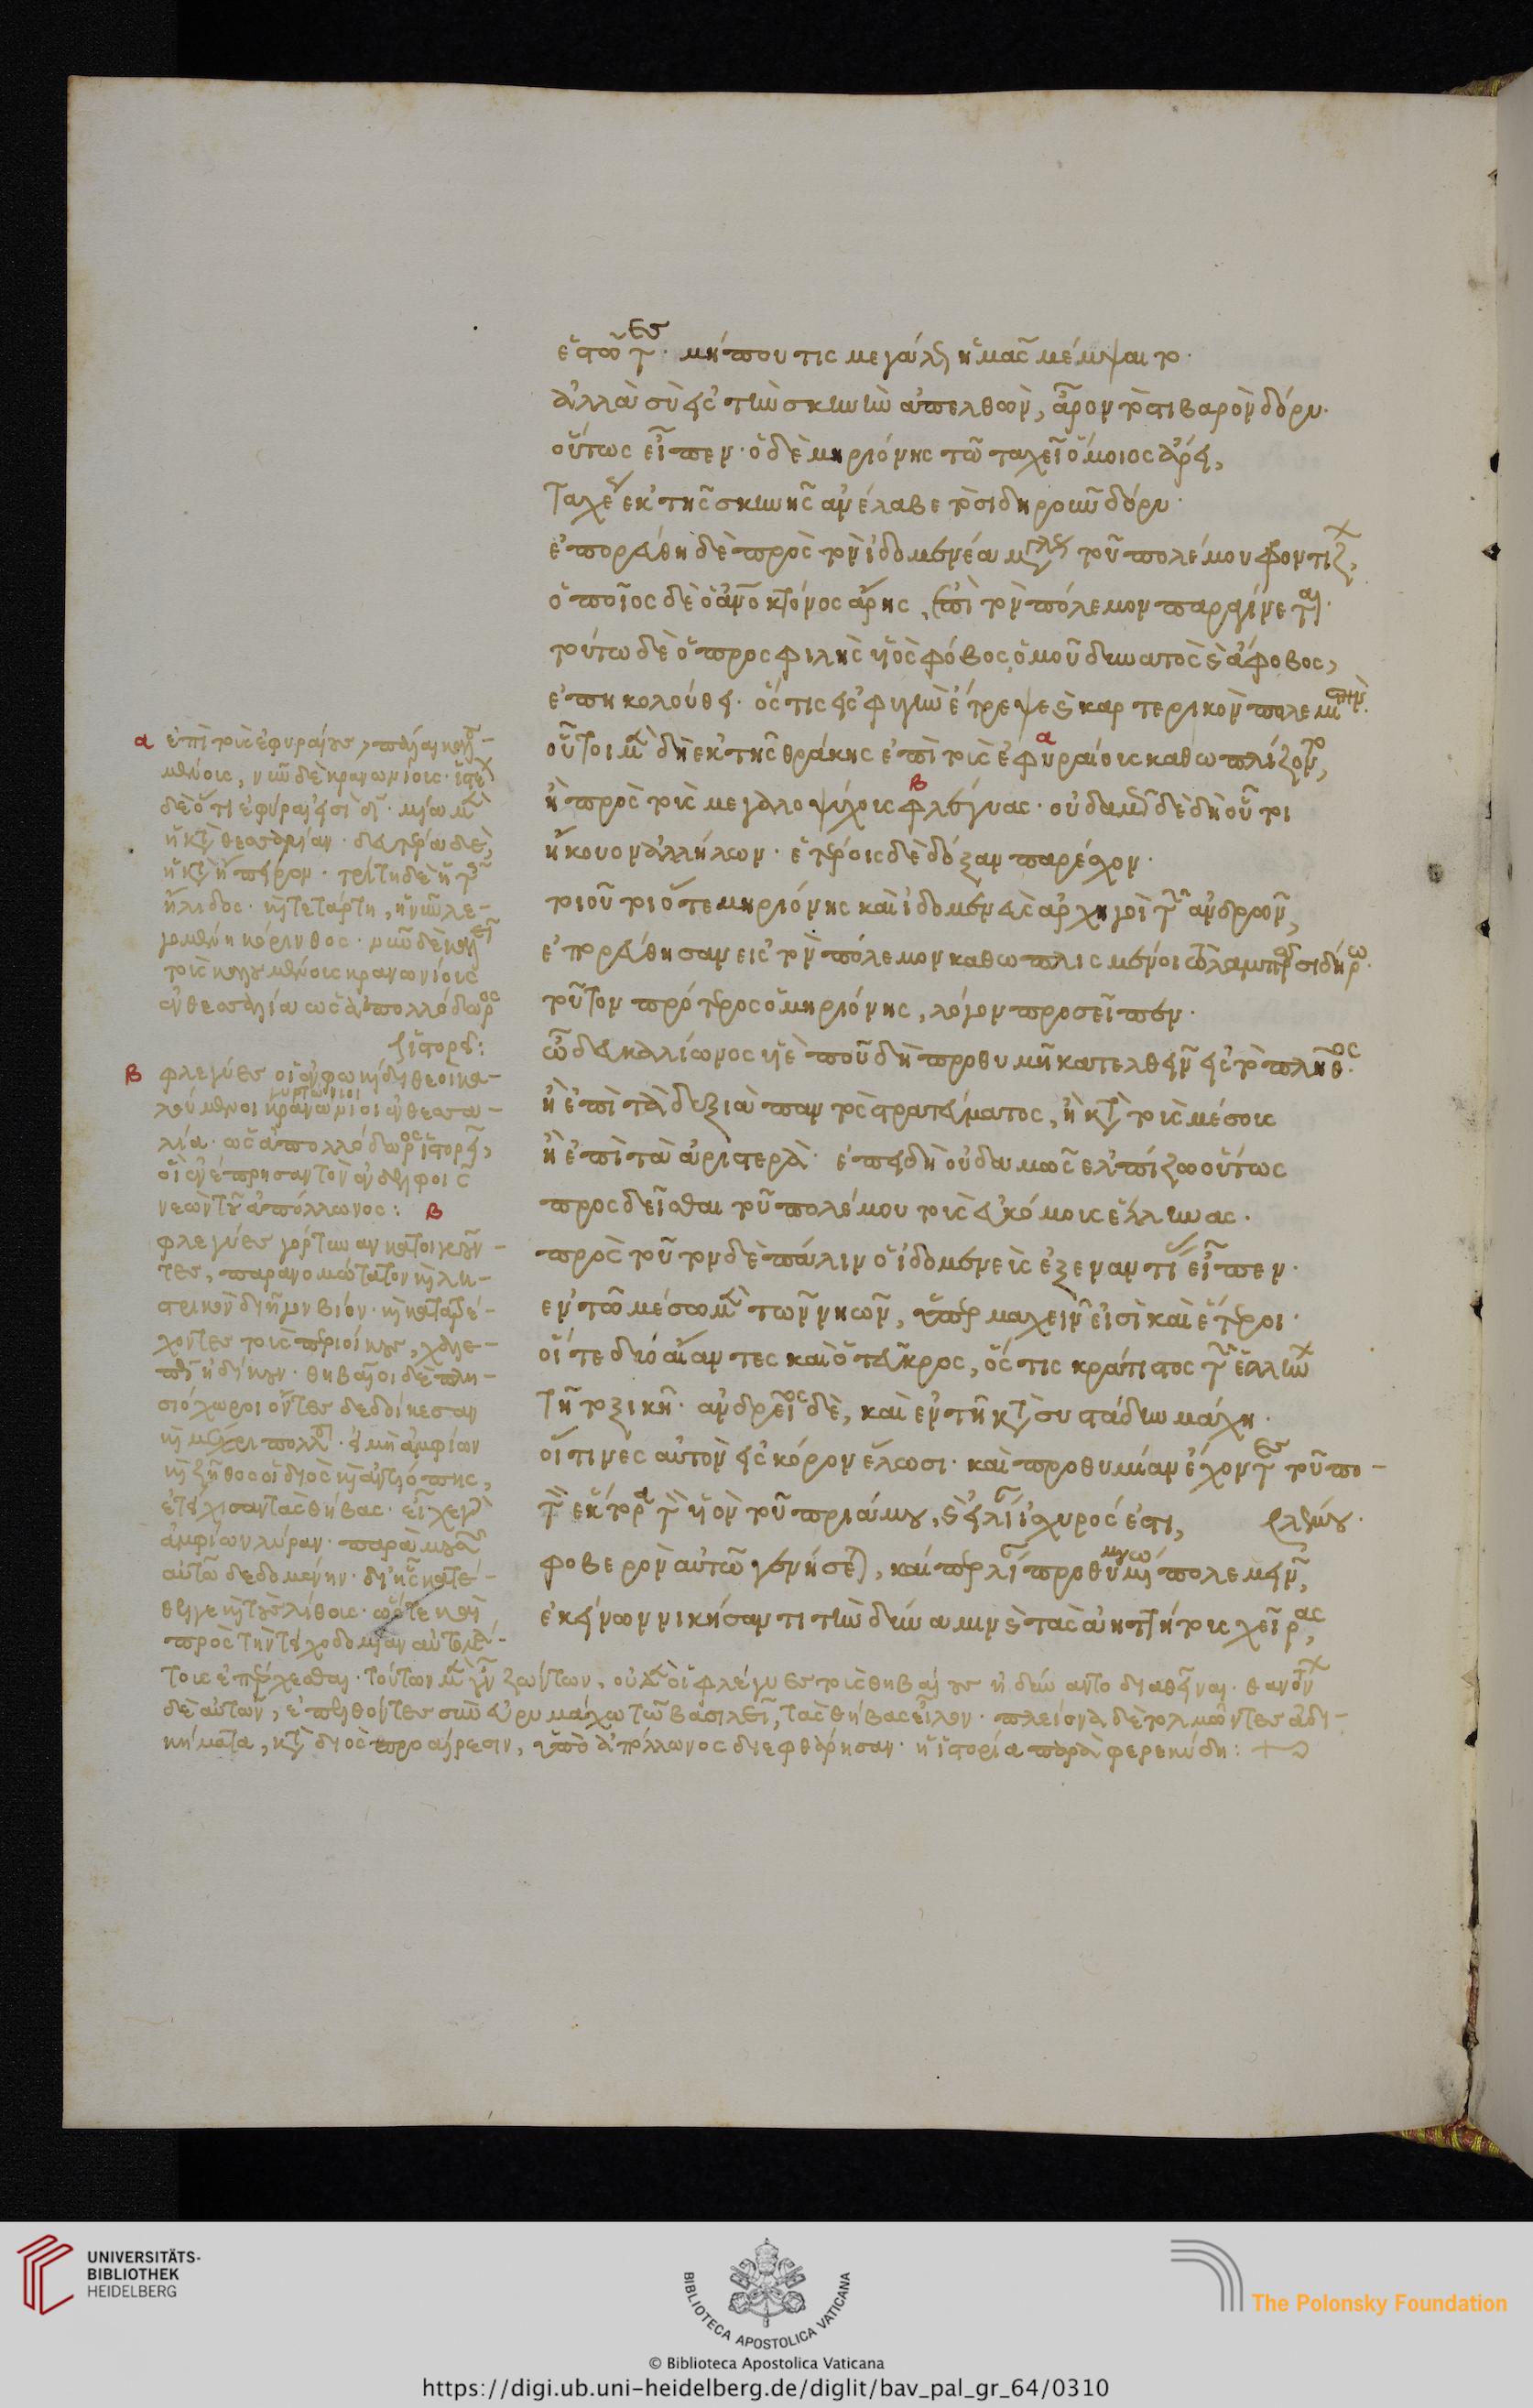 ἑστῶτες· μήπου τις μεγάλως ἡμᾶς μέμψαιτο·
ἀλλὰ σὺ εἰς τὴν σκηνὴν ἀπελθών, ἆρον τὸ στιβαρὸν δόρυ·
οὕτως εἶπεν· ὁ δὲ μηριόνης τῶ ταχεῖ ὅμοιος ἄρει,
ταχέως ἐκ τῆς σκηνῆς ἀνέλαβε τὸ σιδηροῦν δόρυ·
ἐπορεύθη δὲ πρὸς τὸν ἰδομενέα μεγάλως τοῦ πολέμου φροντίζων,
ὁποῖος δὲ ὁ ἀνδροκτόνος ἄρης, ἐπὶ τὸν πόλεμον παραγίνεται·
τούτω δὲ ὁ προσφιλὴς υἱὸς φόβος ὁμοῦ δυνατὸς καὶ ἄφοβος,
ἐπηκολούθει· ὅστις εἰς φυγὴν ἔτρεψε καὶ καρτερικὸν πολεμιστήν·
οὗτοι μὲν δὴ ἐκ τῆς θράκης ἐπὶ τοὺς ἐφυραίους καθωπλίζοντο,
ἢ πρὸς τοὺς μεγαλοψύχους φλεγύας· οὐδαμῶς δὲ δὴ οὗτοι
ἤκουον ἀλλήλων· ἑτέροις δὲ δόξαν παρέσχον·
τοιοῦτοι ὅ τε μηριόνης καὶ ἰδομενεὺς ἀρχηγοὶ τῶν ἀνδρῶν,
ἐπορεύθησαν εἰς τὸν πόλεμον καθωπλισμένοι τῶ λαμπρῶ σιδήρω·
τοῦτον πρότερος ὁ μηριόνης, λόγον προσεῖπεν·
ὦ δευκαλίωνος υἱὲ ποῦ δὴ προθυμῆ κατελθεῖν εἰς τὸ πλῆθος·
ἢ ἐπὶ τὰ δεξιὰ παντὸς στρατεύματος, ἢ κατὰ τοὺς μέσους
ἢ ἐπὶ τὰ ἀριστερὰ· ἐπειδὴ οὐδαμῶς ἐλπίζω οὕτως
προσδεῖσθαι τοῦ πολέμου τοὺς εὐκόμους ἕλληνας·
πρὸς τοῦτον δὲ πάλιν ὁ ἰδομενεὺς ἐξεναντίας εἶπεν·
ἐν τῶ μέσω μὲν τῶν νηῶν, ὑπερμαχεῖν εἰσὶ καὶ ἕτεροι·
οἵ τε δύο αἴαντες καὶ ὁ τεῦκρος, ὅστις κράτιστος τῶν ἑλλήνων
τῆ τοξικῆ· ἀνδρεῖος δὲ, καὶ ἐν τῆ κατὰ συστάδην μάχη·
οἵτινες αὐτὸν εἰς κόρον ἐλῶσι· καὶ προθυμίαν ἔχοντες τοῦ πο-
τὸν ἕκτορα τὸν υἱὸν τοῦ πριάμου, καὶ εἰ λίαν ἰσχυρός ἐστι, λέμου·
φοβερὸν αὐτῶ γενήσεται, καίπερ λίαν προθυμουμένω πολεμεῖν,
ἐκείνων νικήσαντι τὴν δύναμιν καὶ τὰς ἀηττήτους χεῖρας,
α ἐπὶ τοὺς ἐφυραίους, πάλαι καλου-
μένους, νῦν δὲ κρανωνίους· ἱστέον
δὲ ὅτι ἐφύραι εἰσὶ δ΄· μία μὲν
ἡ κατὰ θεσσαλίαν· δευτέρα δὲ,
ἡ κατὰ ἤπειρον· τρίτη δὲ ἡ τῆς
ἤλιδος· καὶ τετάρτη, ἡ νῦν λε-
γομένη κόρινθος· νῦν δὲ καλεῖ
τοὺς καλουμένους κρανωνίους
ἐν θεσσαλία ὡς ἀπολλόδωρος
ἱστορεῖ:
β φλεγύες οἱ ἐν φωκίδι θεοὶ κα-
γυρτώνιοι
λούμενοι κρανώνιοι ἐν θεσσα-
λία· ὡς ἀπολλόδωρος ἱστορεῖ,
οἳ ἐνέπρησαν τὸν ἐν δελφοῖς
νεὼν τοῦ ἀπόλλωνος: β
φλεγύες γόρτυναν κατοικοῦν-
τες, παρανομώτατον καὶ λη-
στρικὸν διῆγον βίον· καὶ κατατρέ-
χοντες τοὺς περιοίκους, χαλε-
πῶς ἠδίκουν· θηβαῖοι δὲ πλη-
σιόχωροι ὄντες ἐδεδοίκεσαν
καὶ μέχρι πολλοῦ· εἰ μὴ ἀμφίων
καὶ ζῆθος οἱ διὸς καὶ ἀντιόπης,
ἐτείχισαν τὰς θήβας· εἶχε γὰρ
ἀμφίων λύραν· παρὰ μουσῶν
αὐτῶ δεδομένην· δι' ἧς κατέ-
θελγε καὶ τοὺς λίθους· ὥστε καὶ
πρὸς τὴν τειχοδομίαν αὐτομά-
τους ἐπέρχεσθαι· τούτων μὲν οὖν ζώντων, οὐδὲν οἱ φλέγυες τοὺς θηβαίους ἠδύναντο διαθεῖναι· θανόντων
δὲ αὐτῶν, ἐπελθόντες σὺν εὐρυμάχω τῶ βασιλεῖ, τὰς θήβας εἷλον· πλείονα δὲ τολμῶντες ἀδι-
κήματα, κατὰ διὸς προαίρεσιν, ὑπὸ ἀπόλλωνος διεφθάρησαν· ἡ ἱστορία παρὰ φερεκύδη:
UNIVERSITÄTS-
BIBLIOTHEK
HEIDELBERG
BIBLIOTECA APOSTOLICA VATICANA
The Polonsky Foundation
© Biblioteca Apostolica Vaticana
https://digi.ub.uni-heidelberg.de/diglit/bav_pal_gr_64/0310